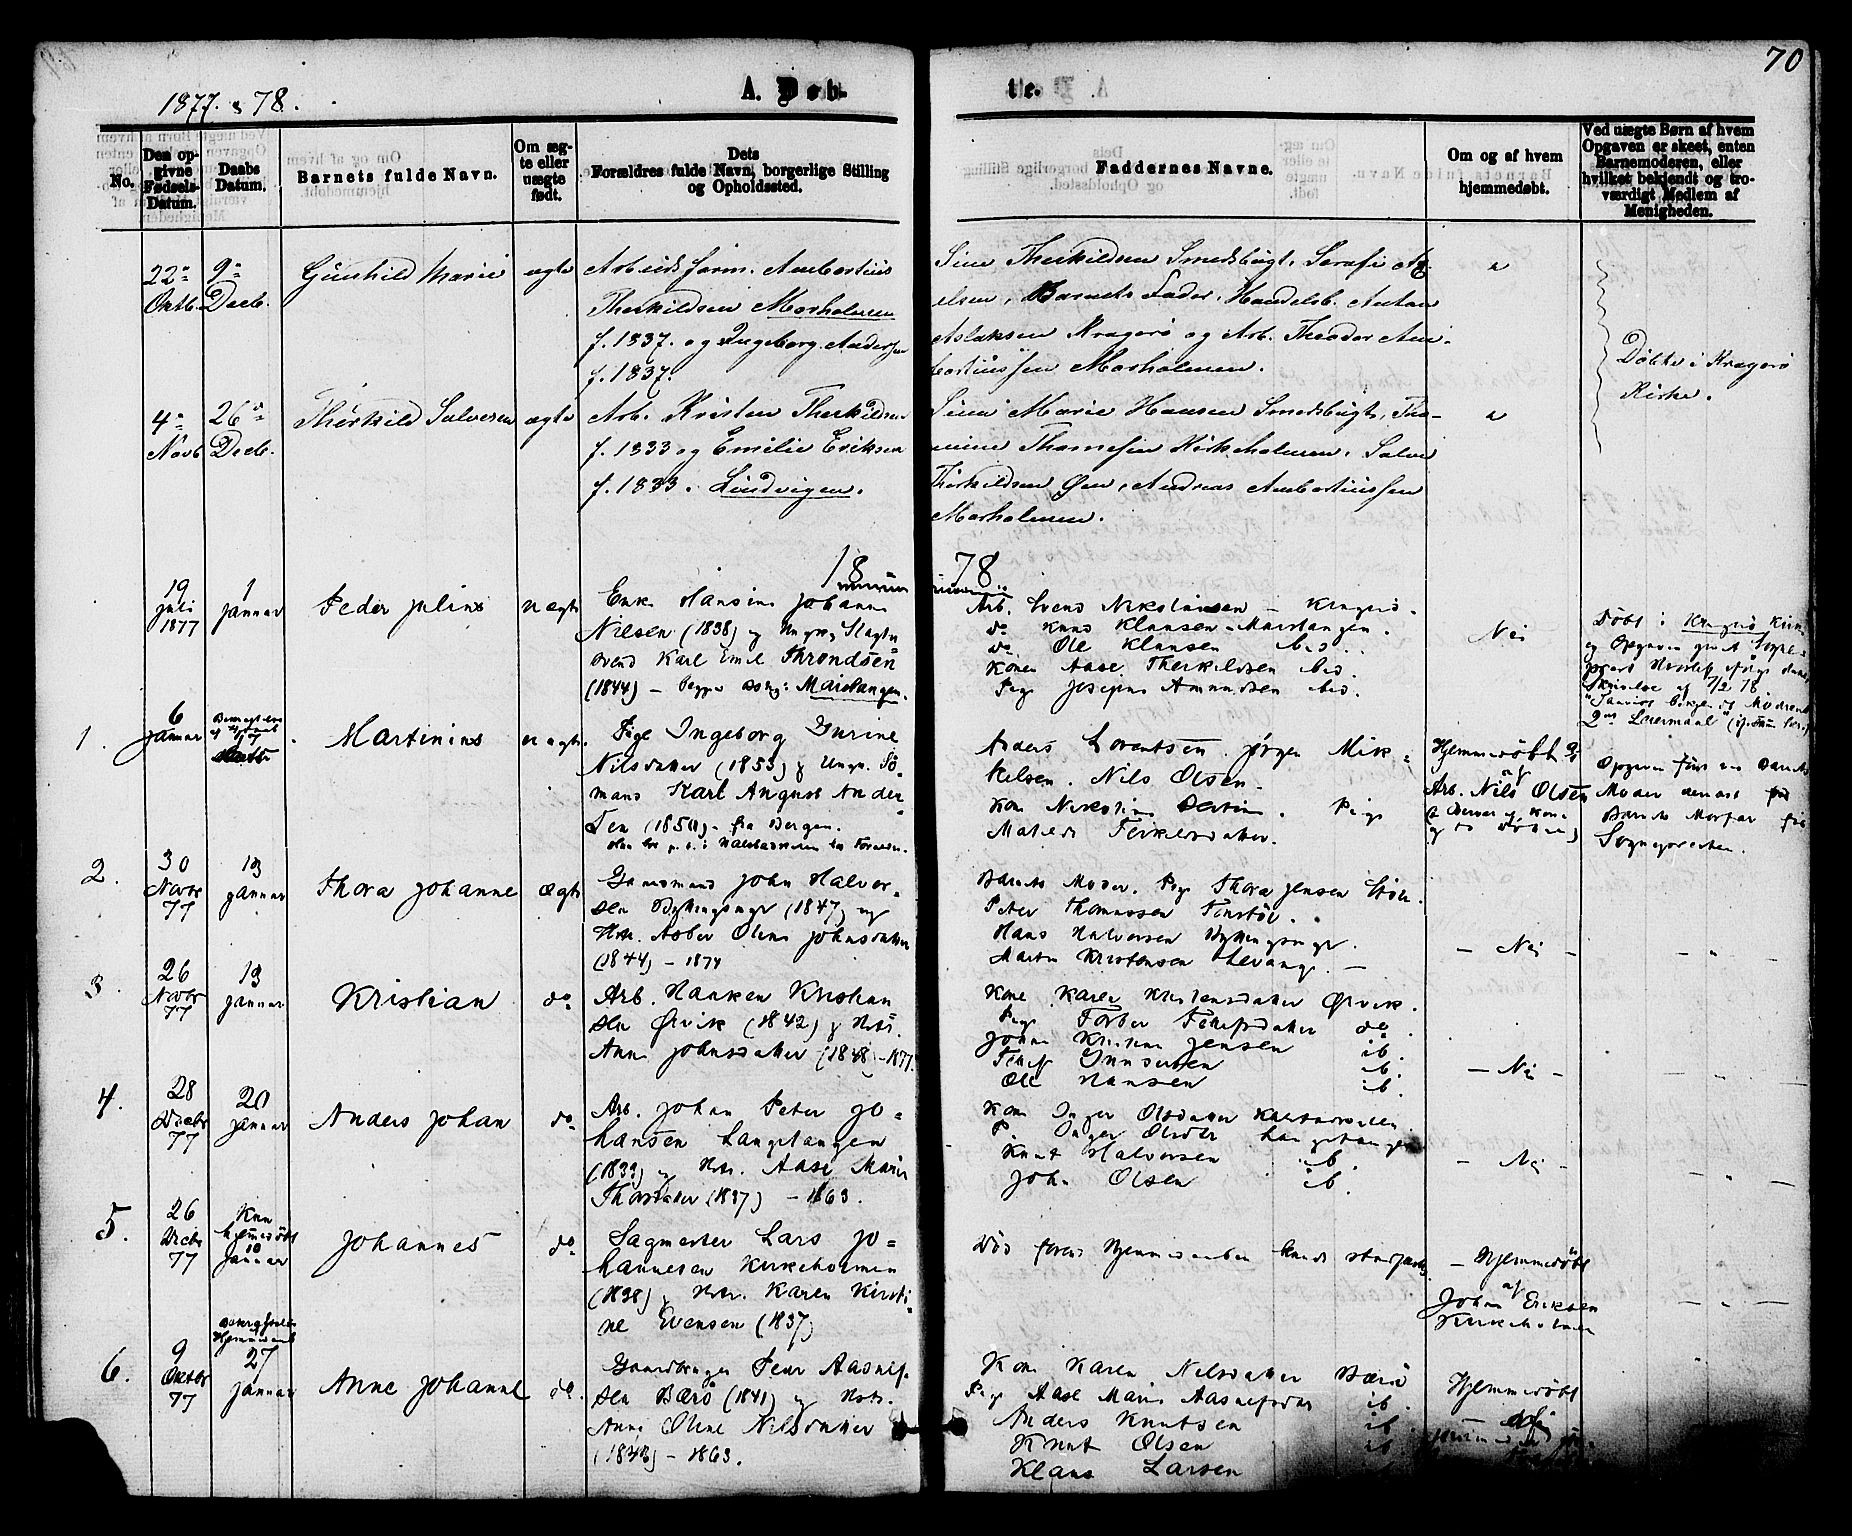 70
1877. & 78.
A. Døb-
te.
No.
Den op-
givne
Fødsels-
Datum.
Daabs
Datum.
Barnets fulde Navn.
Om æg-
te eller
uægte
født.
Dets
Forældres fulde Navn, borgerlige Stilling
og Opholdssted.
Faddernes Navne.
Om og af hvem
hjemmedøbt.
Ved uægte Børn af hvem
Opgaven er skeet, enten
Barnemoderen, eller
hvilket bekjendt og tro-
værdigt Medlem af
Menigheden.
22de Oktb.
9de Decb.
Gunhild Marie
ægte
Arbeidsform. Ambortius
Therkildsen Morholmen
f. 1837. og Ingeborg Andersen
f. 1837.
Sine Therkildsen Smedsbugt,
elsen, Barnets Fader, Handelsb. Anton
Aslaksen Kragerø og Arb. Theodor Am-
bortiussen Morholmen.
Døbte i Kragerø
Kirke.
4de Novb
26de Decb.
Therkild Salvesen
ægte
Arb. Kristen Therkildsen
f. 1833 og Emilie Eriksen
f. 1833. Lindvigen.
Sine Marie Hansen Smedsbugt, Tho-
mine Thomesen Kirkeholmen, Salve
Therkildsen Øen, Andreas Ambortiussen
Morholmen.
18 78
19 Juli 1877
1 Januar
Peder Julius
uægte
Enke Hansine Johanne
Nielsen (1838) og Ungk. Slagter
svend Karl Emil Throndsen
(1844) — begge Marstangen.
Arb. Svend Nikolaisen — Kragerø.
do Knud Klausen — Marstangen.
do. Ole Klausen ibid.
Kone Aase Therkildsen ibid.
Pige Josephe Amundsen ibid.
Nei
Døbt i Kragerø Kirke
1.
6 Januar
Martinius
uægte.
Pige Ingeborg Gurine
Nilsdatter (1853) og Ungk. Sø-
mand Karl August Ander-
sen (1850) — fra Bergen.
Anders Lorentsen. Jørgen Mik-
kelsen. Nils Olsen.
Matilde Terkelsdatter.
Hjemmedøbt
af
Arb. Nils Olsen
Opgaven
Moder dernæst
Barnets Morfar
Sognepresten.
2.
30 Novbr 77
13 Januar
Thora Johanne
Ægte
Gaardmand John Halvor-
sen (1847) og
Hstr. Asber Oline Johnsdatter
(1844) — 1874
Barnets Moder. Pige Thora Jensen
Peter Thomassen
Hans Halvorsen
Martin Kristensen Levang. —
— Nei —
3.
26 Novbr 77
13 Januar
Kristian
do
Arb. Haaken Kristian
sen Ørvik (1842) og Hstr.
Anne Johnsdatter (1848) — 1877.
Kone Karen Kristensdatter Ørvik.
Pige Torber Tellefsdatter do.
Johan Kristian Jensen ib.
Tellef Gundersen ib.
Ole Hansen ib.
— Nei —
4.
28 Decbr 77
20 Januar
Anders Johan
do
Arb. Johan Peter Jo-
hansen Langetangen
og Hstr. Aase Marie
Thorsdatter (1837) — 1863.
Kone Inger Olsdatter
P. Inger Olsdtr Langetangen
Knut Halvorsen ib.
Joh. Olsen ib.
— Nei —
5.
26 Decbr 77
Kun
hjemmedøbt
10 Januar
Johannes
do
Sagmester Lars Jo-
hannesen Kirkeholmen
(1838) og Hstr. Karen Kirsti-
ne Evensen (1837)
Død førend Hjemmedaaben kunde stadfæstes.
— Hjemmedøbt
af
Johan Eriksen
Kirkeholmen
6.
9 Oktbr 77
27 Januar
Anne Johanne
do.
Gaardbruger Peder Aasulf-
sen Bærø (1841) og Hstr.
Anne Oline Nilsdatter
(1843) — 1863.
Kone Karen Nilsdatter Bærø
Pige Aase Marie Aasulfsdat ib.
Anders Knutsen ib
Knut Olsen ib
Klaus Larsen
Hjemmedøbt